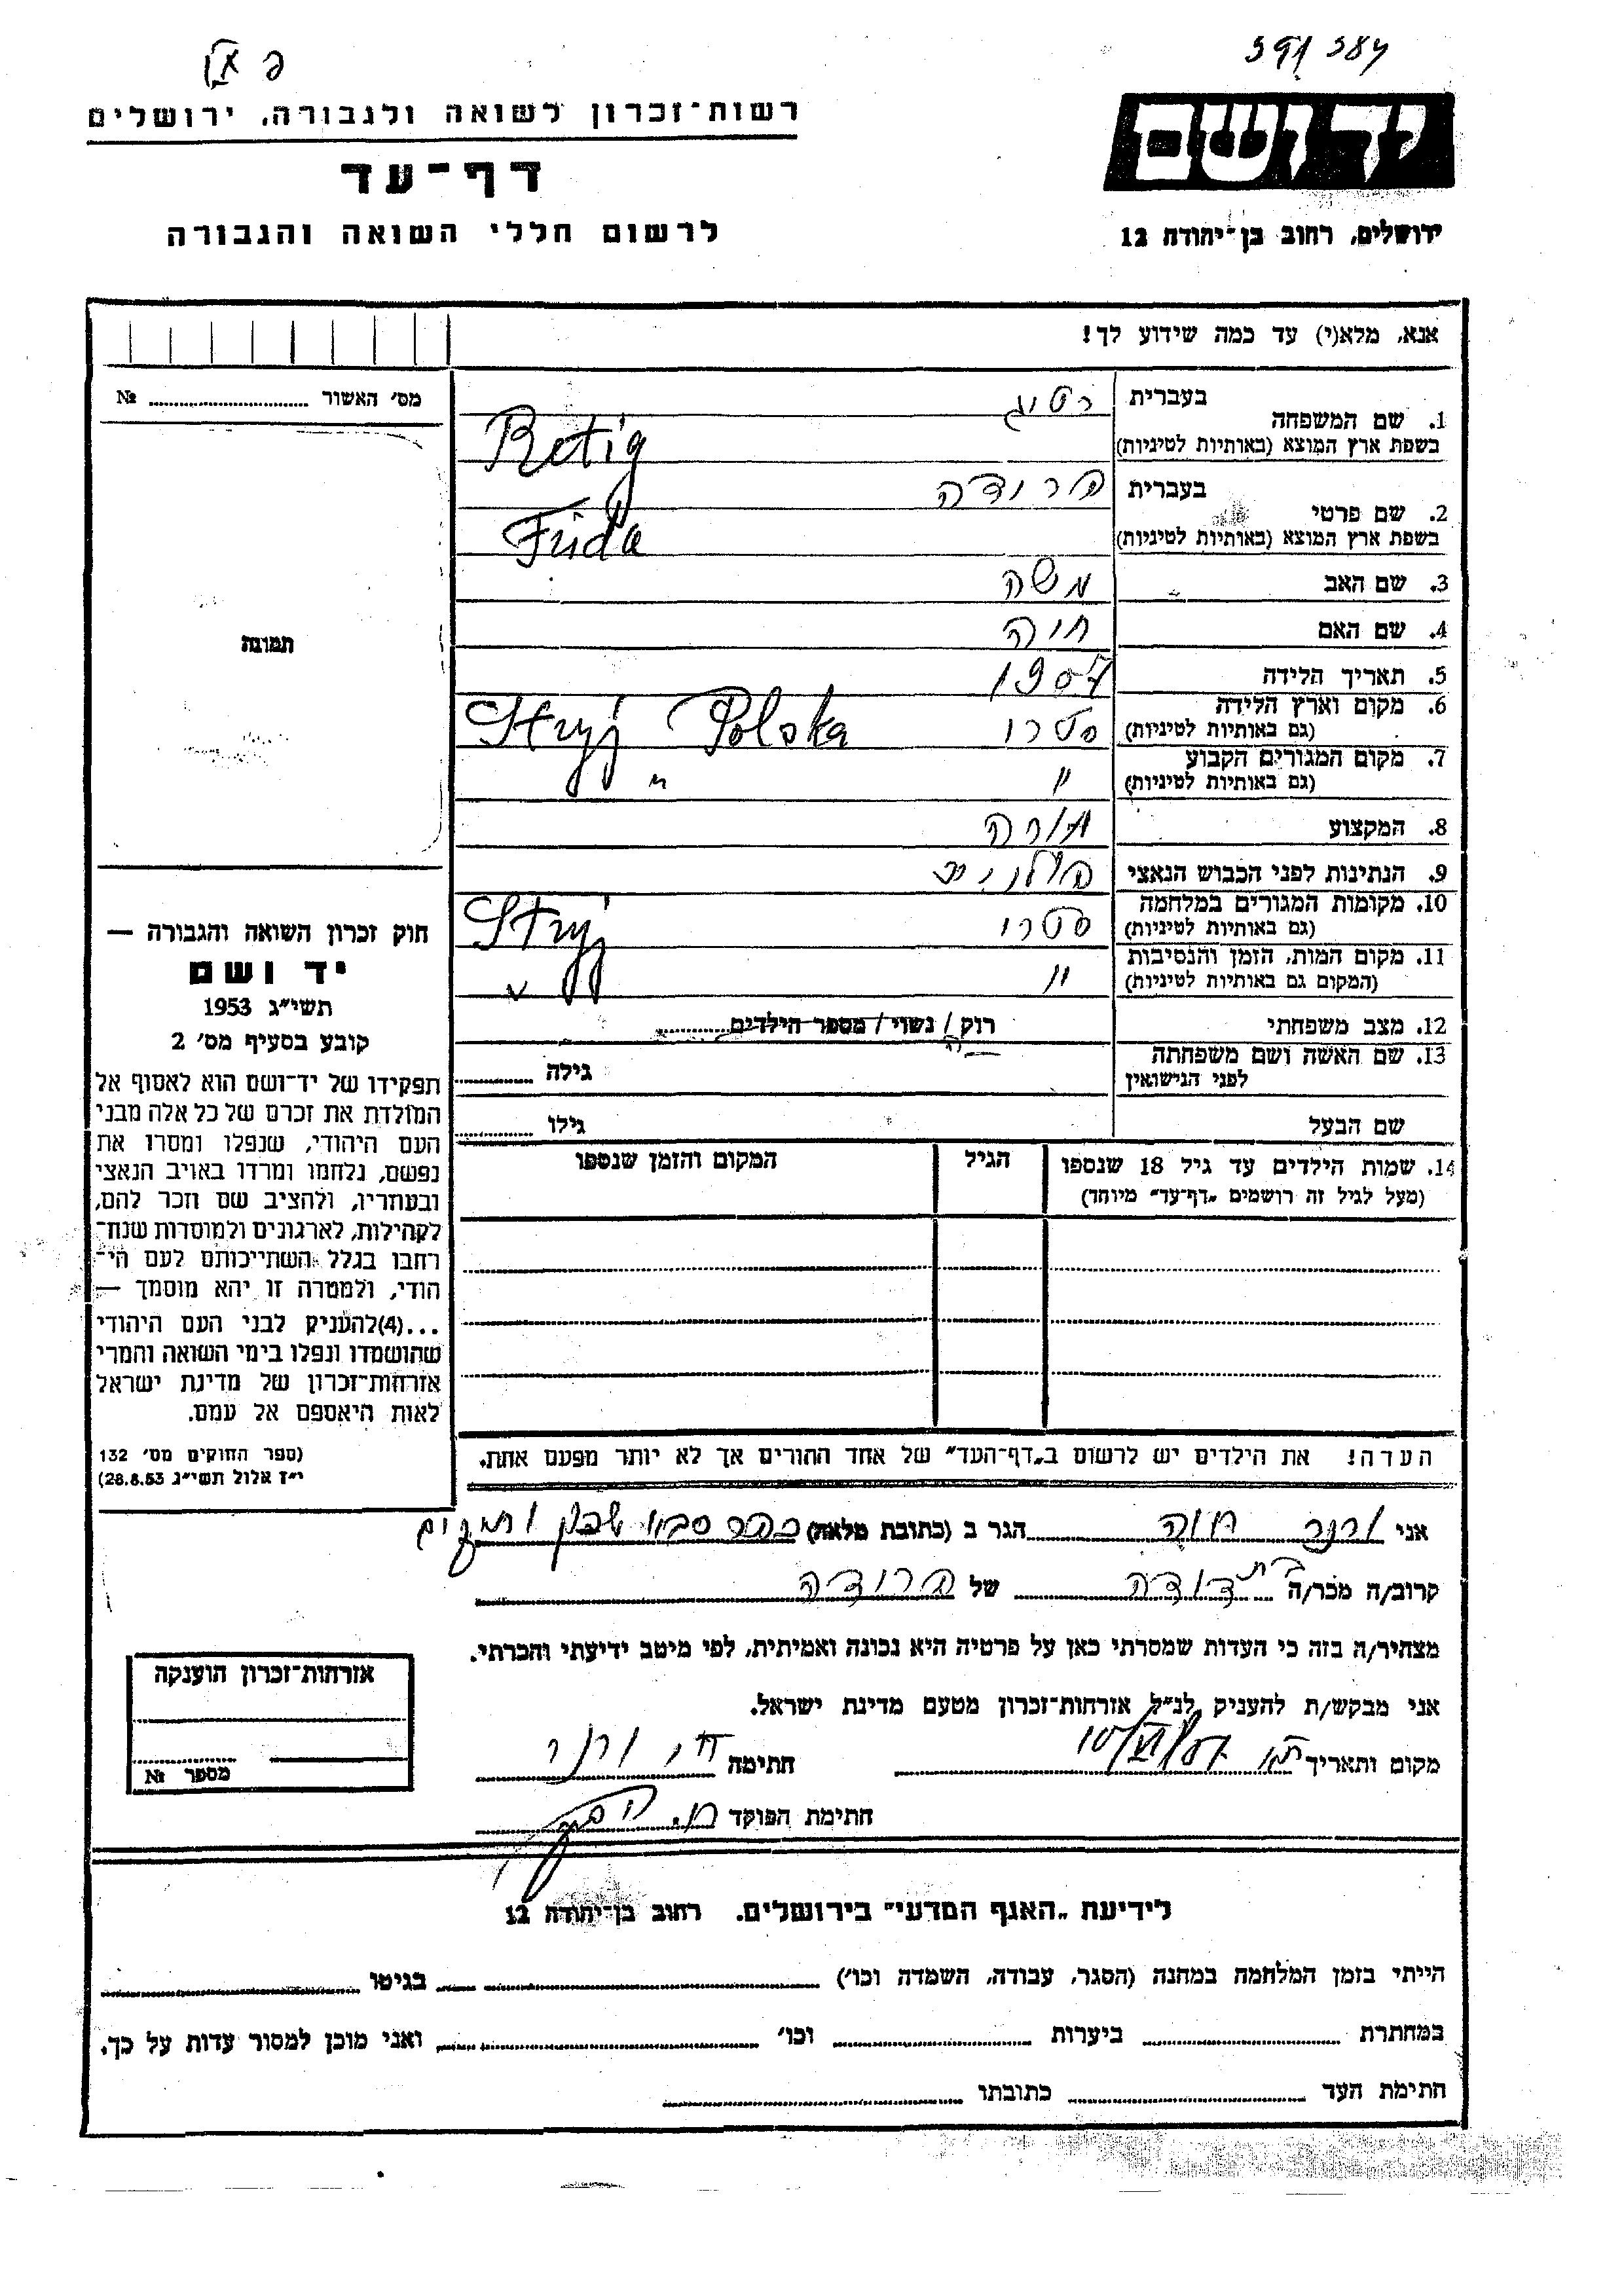 יד ושם
ירושלים, רחוב בן-יהודה 12
רשות-זכרון לשואה ולגבורה, ירושלים
דף-עד
לרשום חללי השואה והגבורה
אנא, מלא(י) עד כמה שידוע לך!
מס׳ האשור № 
בעברית רטיג
1. שם המשפחה
בשפת ארץ המוצא (באותיות לטיניות) Retig
בעברית פרידה
2. שם פרטי
בשפת ארץ המוצא (באותיות לטיניות) Frida
3. שם האב משה
4. שם האם חיה
5. תאריך הלידה 1907
6. מקום וארץ הלידה
(גם באותיות לטיניות) סטרי Stryj Polska
7. מקום המגורים הקבוע
(גם באותיות לטיניות) " "
8. המקצוע
9. הנתינות לפני הכבוש הנאצי פולנית
10. מקומות המגורים במלחמה
(גם באותיות לטיניות) סטרי Stryj
11. מקום המות, הזמן והנסיבות
(המקום גם באותיות לטיניות) " "
12. מצב משפחתי רוק/ נשוי/ מספר הילדים
13. שם האשה ושם משפחתה
לפני הנישואין גילה
שם הבעל גילו
14. שמות הילדים עד גיל 18 שנספו
(מעל לגיל זה רושמים „דף-עד" מיוחד)
הגיל
המקום והזמן שנספו
תמונה
חוק זכרון השואה והגבורה —
יד ושם
תשי״ג 1953
קובע בסעיף מס׳ 2
תפקידו של יד-ושם הוא לאסוף אל
המולדת את זכרם של כל אלה מבני
העם היהודי, שנפלו ומסרו את
נפשם, נלחמו ומרדו באויב הנאצי
ובעוזריו, ולהציב שם וזכר להם,
לקהילות, לארגונים ולמוסדות שנח־
רבו בגלל השתייכותם לעם הי־
הודי, ולמטרה זו יהא מוסמך —
...(4)להעניק לבני העם היהודי
שהושמדו ונפלו בימי השואה והמרי
אזרחות-זכרון של מדינת ישראל
לאות היאספם אל עמם.
(ספר החוקים מס׳ 132
י״ז אלול תשי״ג 28.8.53)
הערה! את הילדים יש לרשום ב„דף-העד" של אחד ההורים אך לא יותר מפעם אחת.
אני ורנר חוה הגר ב (כתובת מלאה) כפר סבא
קרוב/ה מכר/ה בת דודה של פרידה
מצהיר/ה בזה כי העדות שמסרתי כאן על פרטיה היא נכונה ואמיתית, לפי מיטב ידיעתי והכרתי.
אני מבקש/ת להעניק לנ״ל אזרחות-זכרון מטעם מדינת ישראל.
מקום ותאריך חתימה ח. ורנר
חתימת הפוקד
אזרחות-זכרון הוענקה
מספר №
לידיעת „האגף המדעי" בירושלים. רחוב בן-יהודה 12
הייתי בזמן המלחמה במחנה (הסגר, עבודה, השמדה וכו׳) בגיטו
במחתרת ביערות וכו׳ ואני מוכן למסור עדות על כך.
חתימת העד כתובתו